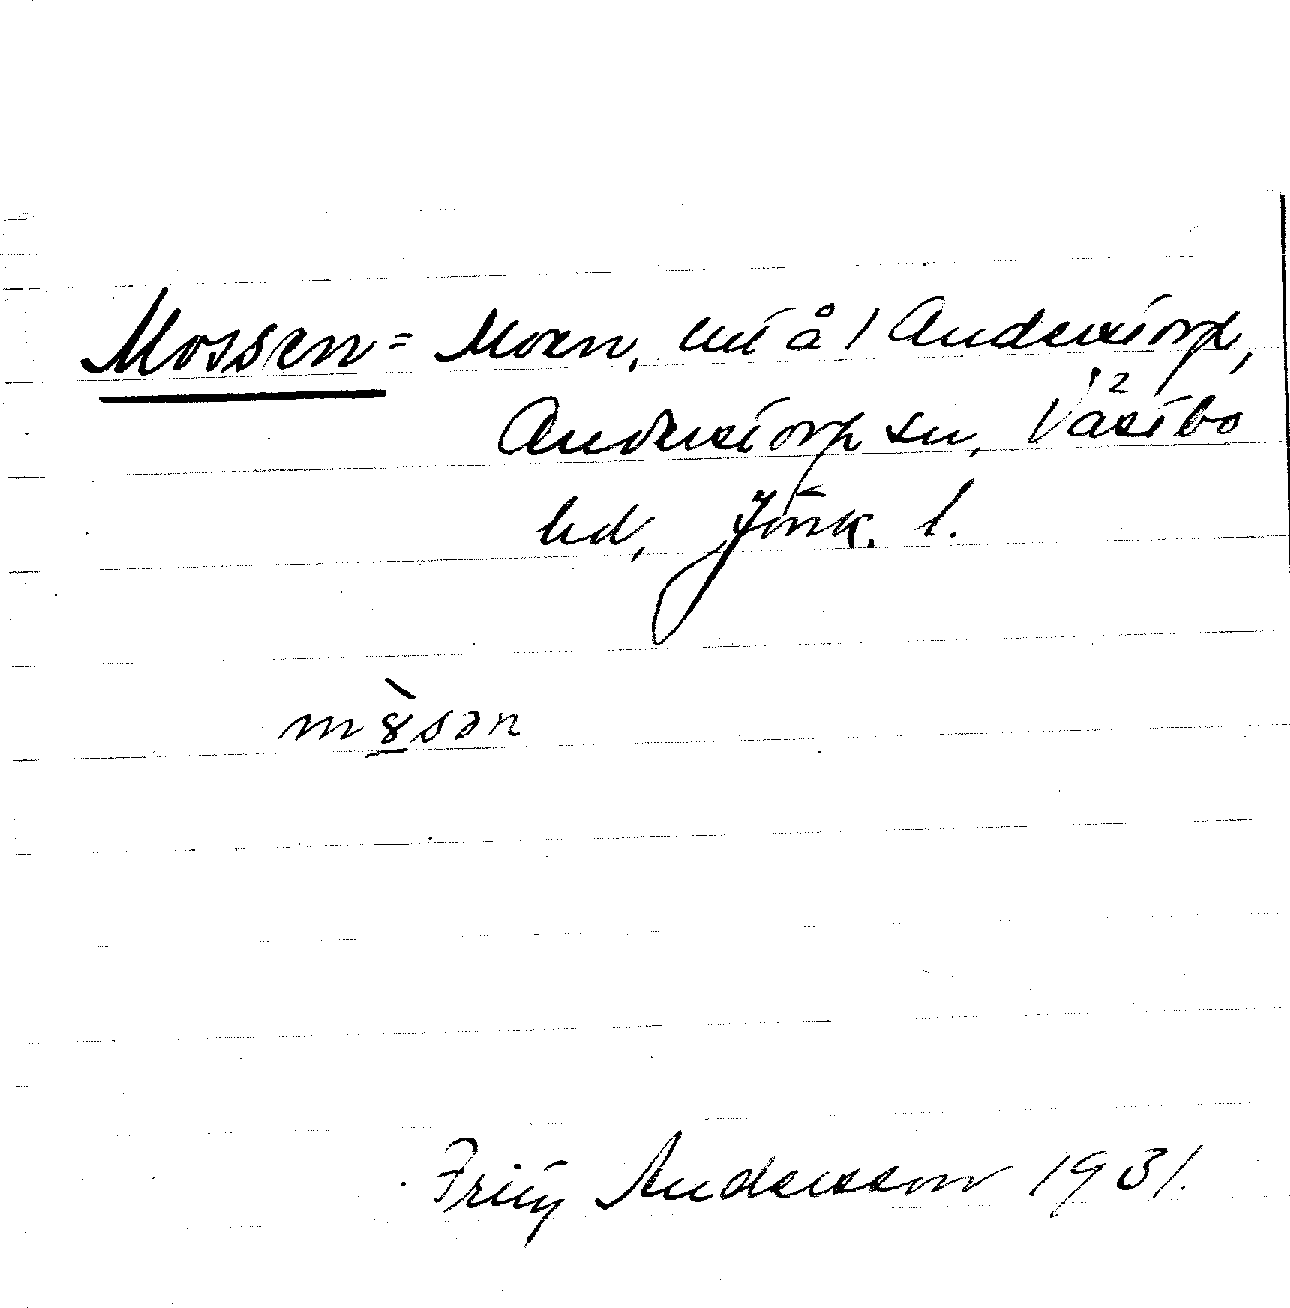 Mossen = Moen, utl å 1 Anderstorp,
Anderstorp sn, Västbo
hd, Jönk. l.
mȣ̀sən
Fritz Andersson 1931.